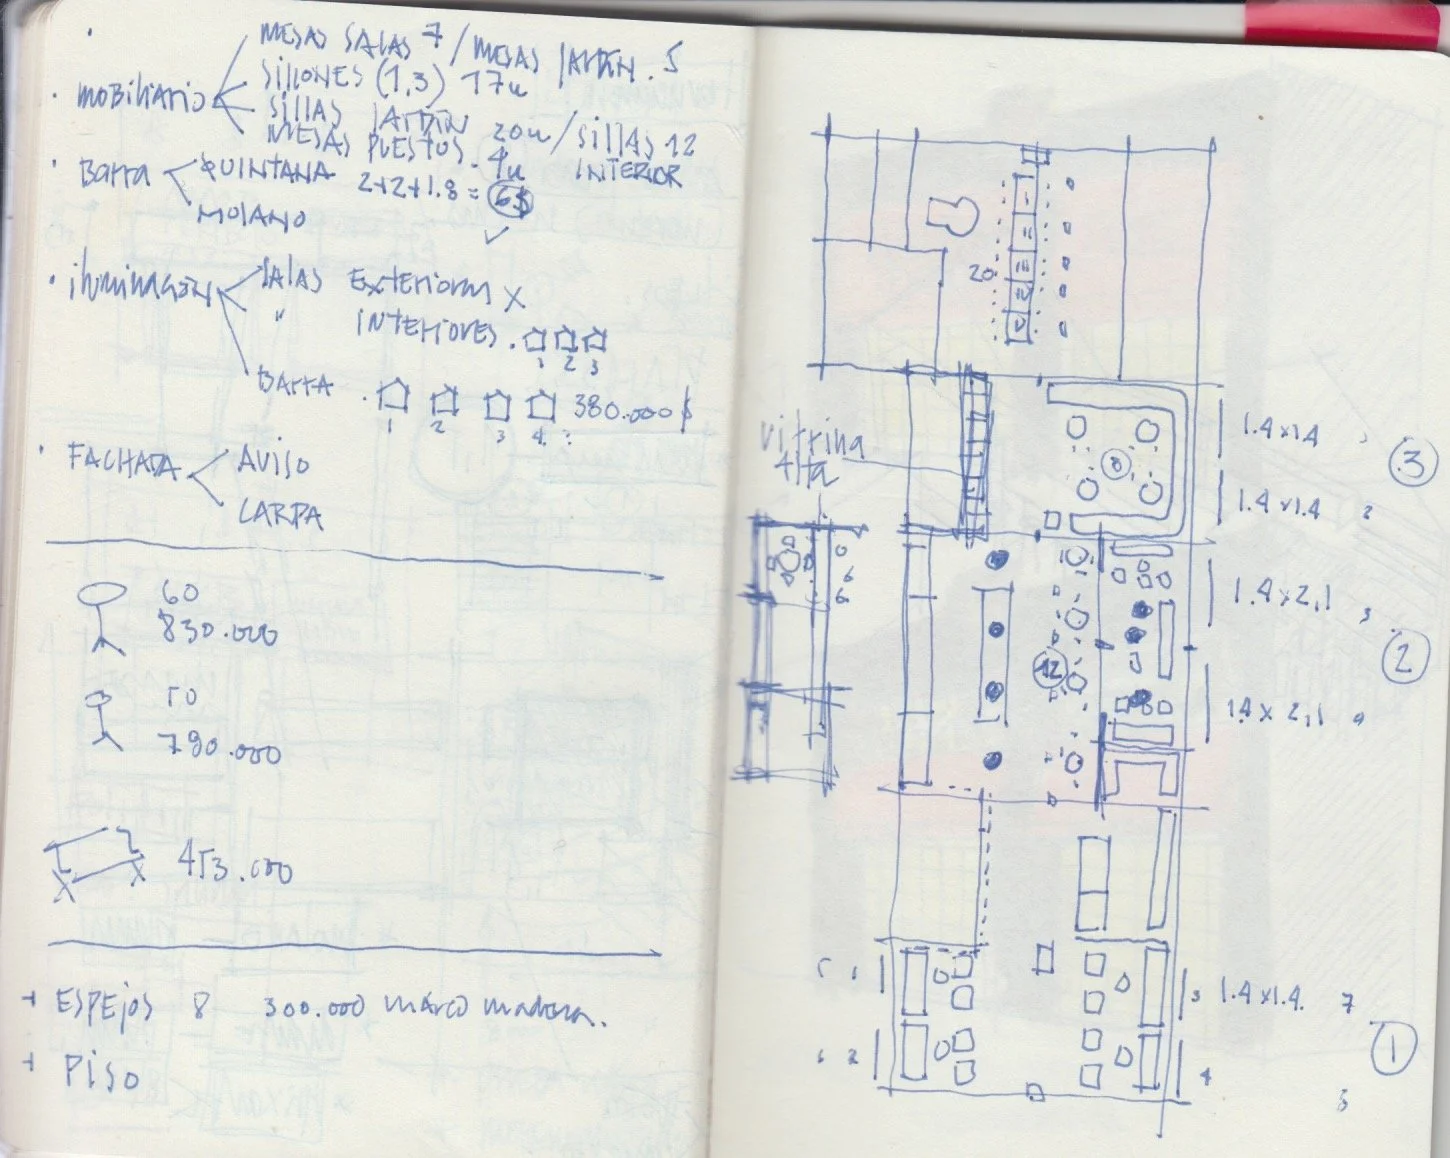 MESAS SALAS 7 / MESAS JARDÍN . 5
· mobiliario
SILLONES (1,3) 17u
SILLAS JARDÍN 20u / SILLAS 12
INTERIOR
MESAS PUESTOS . 4u
· Barra
QUINTANA
2+2+1.8 =
MOLANO
· iluminación
SALAS Exteriores X
" INTERIORES .
1 2 3
BARRA . 380.000 $
1 2 3 4
· FACHADA
AVISO
CARPA
60
830.000
50
790.000
453.000
+ ESPEJOS 8 300.000 marco madera.
+ PISO
20
vitrina
Alta
8
1.4x1.4
1.4x1.4 2
3
1.4x2,1 3
12
2
1.4x2,1 4
1
3 1.4x1.4. 7
2
4
1